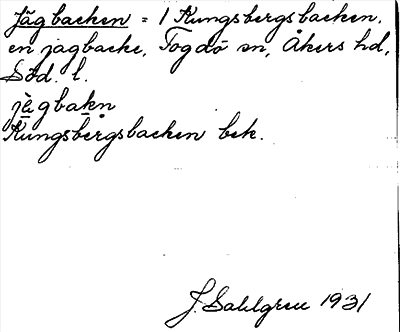 Jägbacken = / Kungsbergsbacken.
en jagbacke, Fogdö sn, Åkers hd,
Söd. l.
jɛ̀gbakn
Kungsbergsbacken bek.
J. Sahlgren 1931